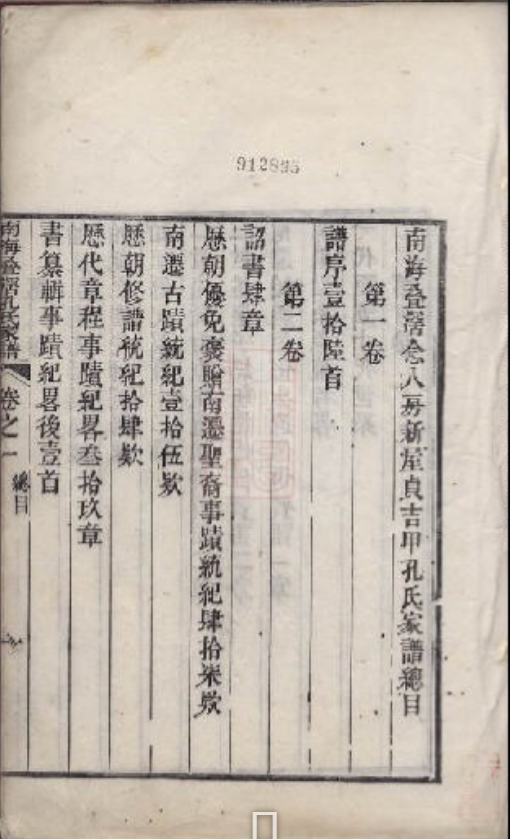 912895
南海疊滘念八房新屋貞吉甲孔氏家譜總目
第一卷
譜序壹拾陸首
第二卷
詔書肆章
歷朝優免褒贈南遷聖裔事蹟統紀肆拾柒欵
南遷古蹟統紀壹拾伍欵
歷朝修譜統紀拾肆欵
歷代章程事蹟紀畧叁拾玖章
書纂輯事蹟紀畧後壹首
南海疊滘孔氏家譜 卷之一 總目